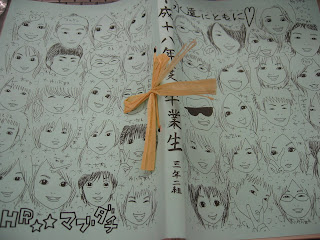 永遠にともに♡
成十八年度卒業生
三年二組
HR☆☆マブダチ